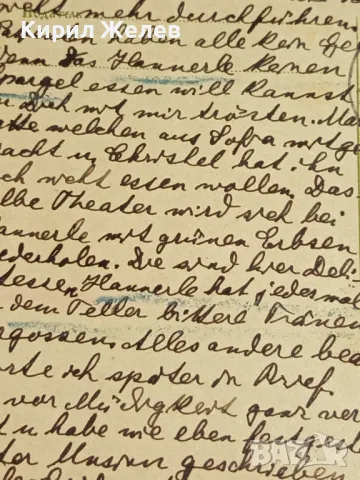 mehr durchführen
Податель
Кирил Желев
haben alle kein Ge
Wenn das Hannerle keinen
spargel essen will kannst
Dich mit mir trösten. Mar
atte welchen aus Sofia mitge
racht u. Christel hat ihn
ch nicht essen wollen. Das
elbe Theater wird sich bei
annerle mit grünen Erbsen
iederholen. Die sind hier Deli
tessen, Hannerle hat jedesmal
dem Teller bittere Träne
gossen. Alles andere bea
rte ich später in Brief
vor Müdigkeit ganz ver
t u habe wie eben festgest
ter geschrieben